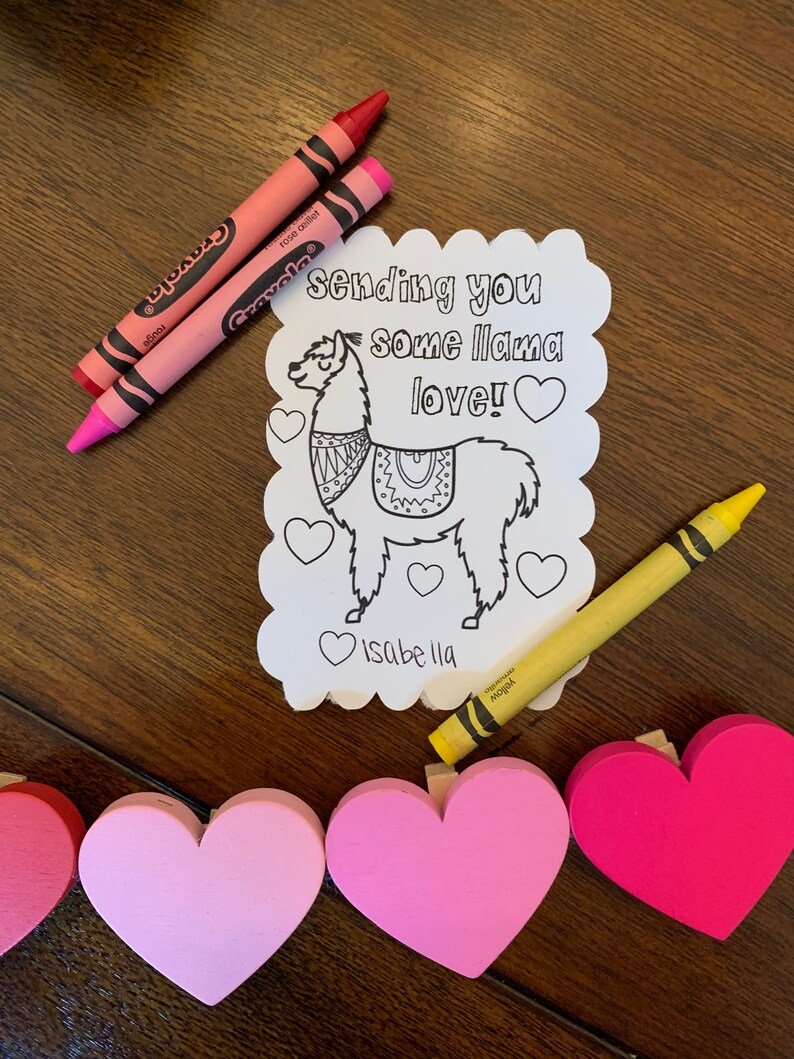 Crayola
rouge
Crayola
rose œillet
sending you
some llama
love!
Isabella
yellow
amarillo